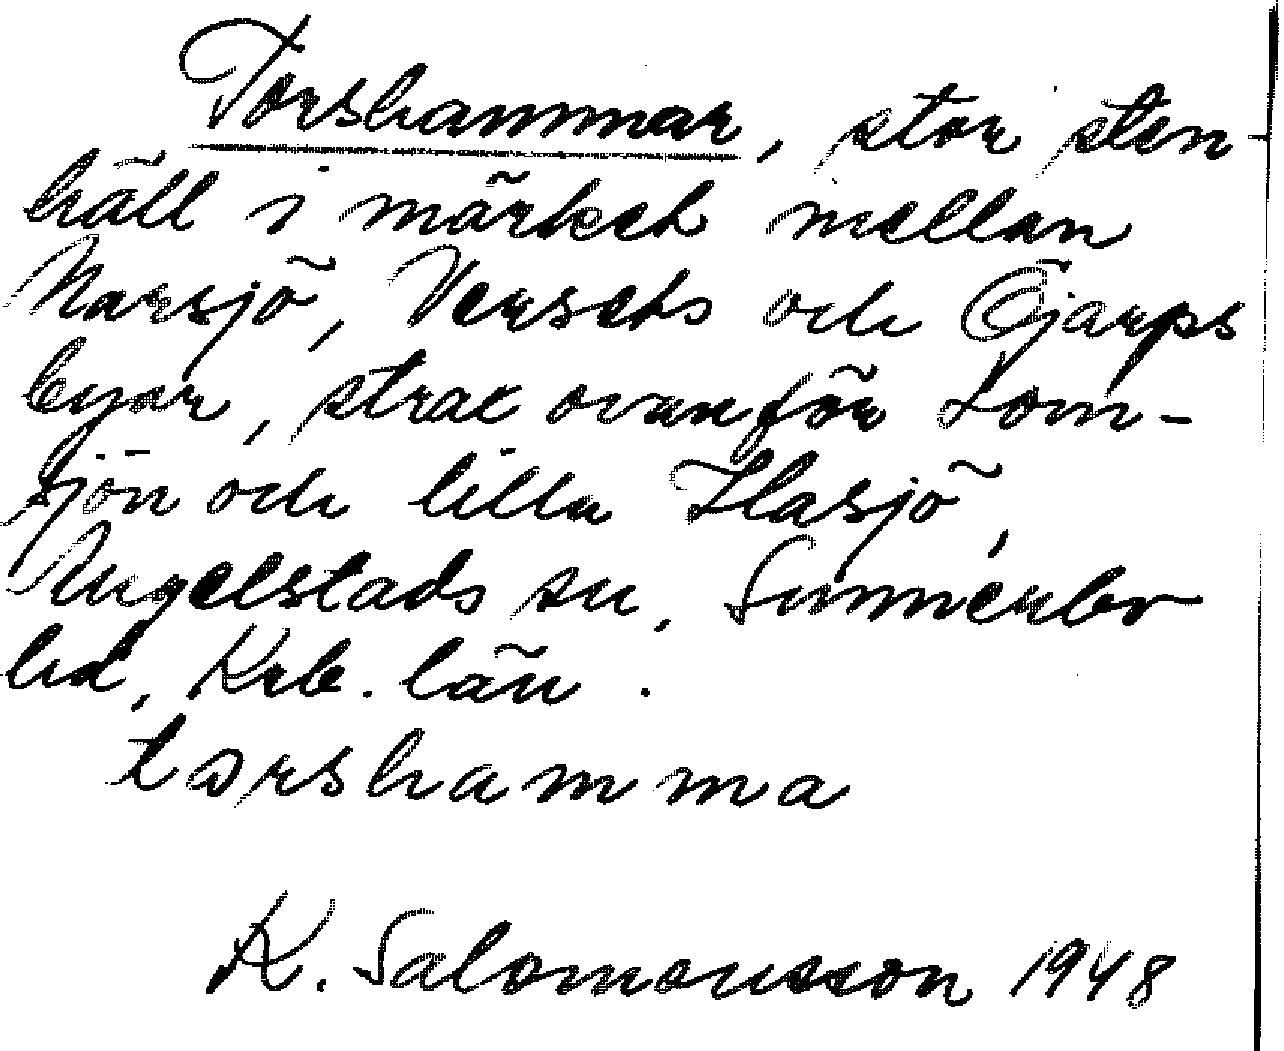 Torshammar, stor sten-
häll i märket mellan
Narsjö, Versets och Öjarps
byar, strax ovanför Lom-
sjön och lilla Ilasjö,
Angelstads sn, Sunnerbo
hd, Krb. län.
torshamma
K. Salomonsson 1948